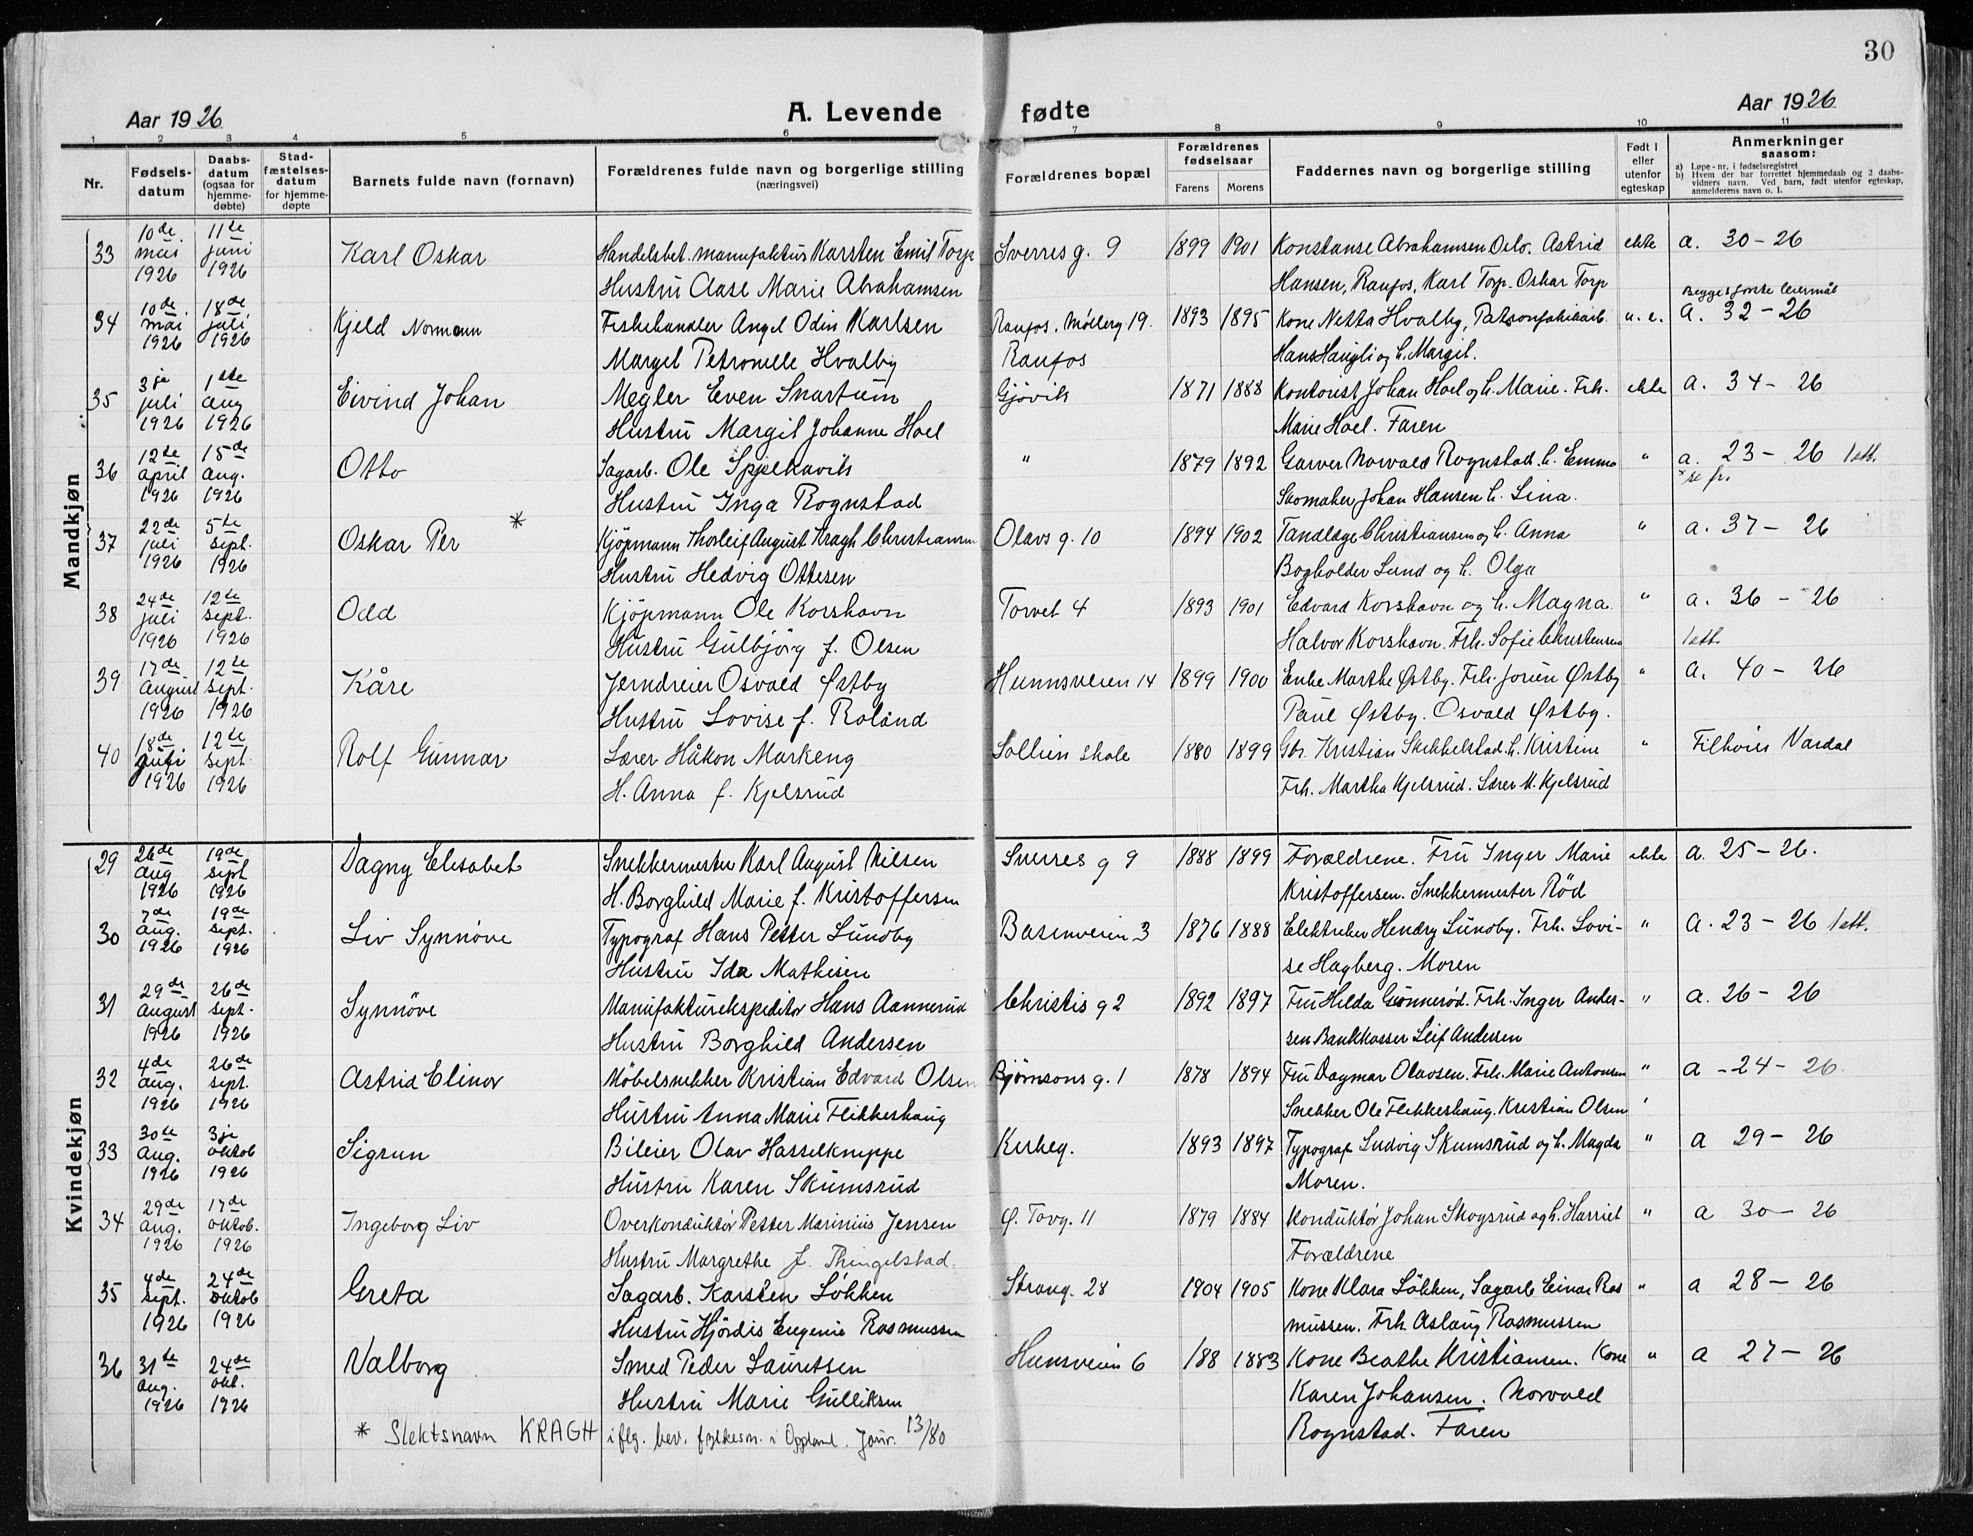 30
Aar 1926
A. Levende fødte
Aar 1926
1 2 3 4 5 6 7 8 9 10 11
Nr.
Fødsels-
datum
Daabs-
datum
(ogsaa for
hjemme-
døbte)
Stad-
fæstelses-
datum
for hjemme-
døpte
Barnets fulde navn (fornavn)
Forældrenes fulde navn og borgerlige stilling
(næringsvei)
Forældrenes bopæl
Forældrenes
fødselsaar
Farens Morens
Faddernes navn og borgerlige stilling
Født i
eller
utenfor
egteskap
Anmerkninger
saasom:
a) Løpe-nr. i fødselsregistret
b) Hvem der har forrettet hjemmedaab og 2 daabs-
vidners navn. Ved barn, født utenfor egteskap,
anmelderens navn o. l.
Mandkjøn
33 10de mai 1926 11te juni 1926 Karl Oskar Handelsbet. manufaktur Karsten Emil Torp Sverres g. 9 1899 1901 Konstanse Abrahamsen Oslo. Astrid ekte a. 30-26
Hustru Aase Marie Abrahamsen Hansen, Raufos, Karl Torp. Oskar Torp
Begges første leiermål
34 10de mai 1926 18de juli 1926 Kjeld Normann Fiskehandler Angel Odin Karlsen Raufos. Møllerg 19. 1893 1895 Kone Netta Hvalby, Patronfabrikarb. u. e. a. 32-26
Margit Petronelle Hvalby Raufos Hans Haugli og h. Margit.
35 3je juli 1926 1ste aug 1926 Eivind Johan Megler Even Snartum Gjøvik 1871 1888 Kontorist Johan Hoel og h. Marie. Frk. ekte a. 34-26
Hustru Margit Johanne Hoel Marie Hoel. Faren
36 12te april 1926 15de aug. 1926 Otto Sagarb. Ole Spjelkavik " 1879 1892 Garver Norvald Rognstad. h. Emma " a. 23-26 1att.
Hustru Inga Rognstad Skomaker Johan Hansen h. Lina.
37 22de juli 1926 5te sept. 1926 Oskar Per * Kjöpmann Thorleif August Kragh Christiansen Olavs g. 10 1894 1902 Tandlæge Christiansen og h. Anna " a. 37-26
Hustru Hedvig Ottesen Bogholder Lund og h. Olga
38 24de juli 1926 12te sept. 1926 Odd Kjöpmann Ole Korshavn Torvet 4 1893 1901 Edvard Korshavn og h. Magna. " a. 36-26
Hustru Gulbjörg f. Olsen Halvor Korshavn. Frk. Sofie Christensen 1att.
39 17de August 1926 12te sept. 1926 Kåre Jerndreier Osvald Østby Hunnsveien 14 1899 1900 Enke Marthe Østby. Frk. Jorun Østby " a. 40-26
Hustru Lovise f. Roland Paul Østby. Osvald Østby.
40 18de juli 1926 12te sept. 1926 Rolf Gunnar Lærer Håkon Markeng Sollien skole 1880 1899 Gbr. Kristian Skikkelstad h. Kristine " Tilhører Vardal
H. Anna f. Kjelsrud Frk. Martha Kjelsrud. Lærer M. Kjelsrud
Kvindekjøn
29 26de aug 1926 19de sept 1926 Dagny Elisabet Snekkermester Karl August Nilsen Sverres g 9 1888 1899 Forældrene. Fru Inger Marie ekte a. 25-26.
H. Borghild Marie f. Kristoffersen Kristoffersen. Snekkermester Rød
30 7de aug. 1926 19de sept. 1926 Liv Synnöve Typograf Hans Petter Lundby Bassenveien 3 1876 1888 Elektriker Hendry Lundby. Frk. Lovi- " a. 23-26 1att.
Hustru Ida Mathisen se Hagberg. Moren
31 29de August 1926 26de sept. 1926 Synnöve Manufakturekspeditör Hans Aannerud Christis g 2 1892 1897 Fru Hilda Gunnerød. Frk. Inger Ander- " a. 26-26
Hustru Borghild Andersen sen Bankkasser Leif Andersen
32 4de aug. 1926 26de sept. 1926 Astrid Elinor Møbelsnekker Kristian Edvard Olsen Bjørnsons g. 1 1878 1894 Fru Dagmar Olavsen. Frk. Marie Antonsen " a-24-26
Hustru Anna Marie Flikkeshaug Snekker Ole Flikkeshaug. Kristian Olsen
33 30te Aug. 1926 3je oktob 1926 Sigrun Bileier Olav Hasselknippe Kirkeg. 1893 1897 Typograf Ludvig Skumsrud og h. Magda " a 29-26
Hustru Karen Skumsrud Moren.
34 29de aug. 1926 17de oktob. 1926 Ingeborg Liv Overkonduktör Petter Marinius Jensen Ø. Torvg. 11 1879 1884 Konduktör Johan Skogsrud og h. Harriet " a 30-26
Hustru Margrethe f. Thingelstad. Forældrene
35 4de sept. 1926 24de oktob 1926 Greta Sagarb. Karsten Løkken Strang. 28 1904 1905 Kone Klara Løkken, Sagarb Einar Ras " a 28-26
Hustru Hjördis Eugenie Rasmussen mussen. Frk Aslaug Rasmussen
36 31te aug. 1926 24de okt. 1926 Valborg Smed Peder Lauretsen Hunsveien 6 188 1883 Kone Beathe Kristiansen. Kone " a 27-26
Hustru Marie Gulliksen Karen Johansen. Norvald
Rognstad. Faren
* Slektsnavn KRAGH iflg. bev. fylkesm. i Oppland. Jour. 13/80